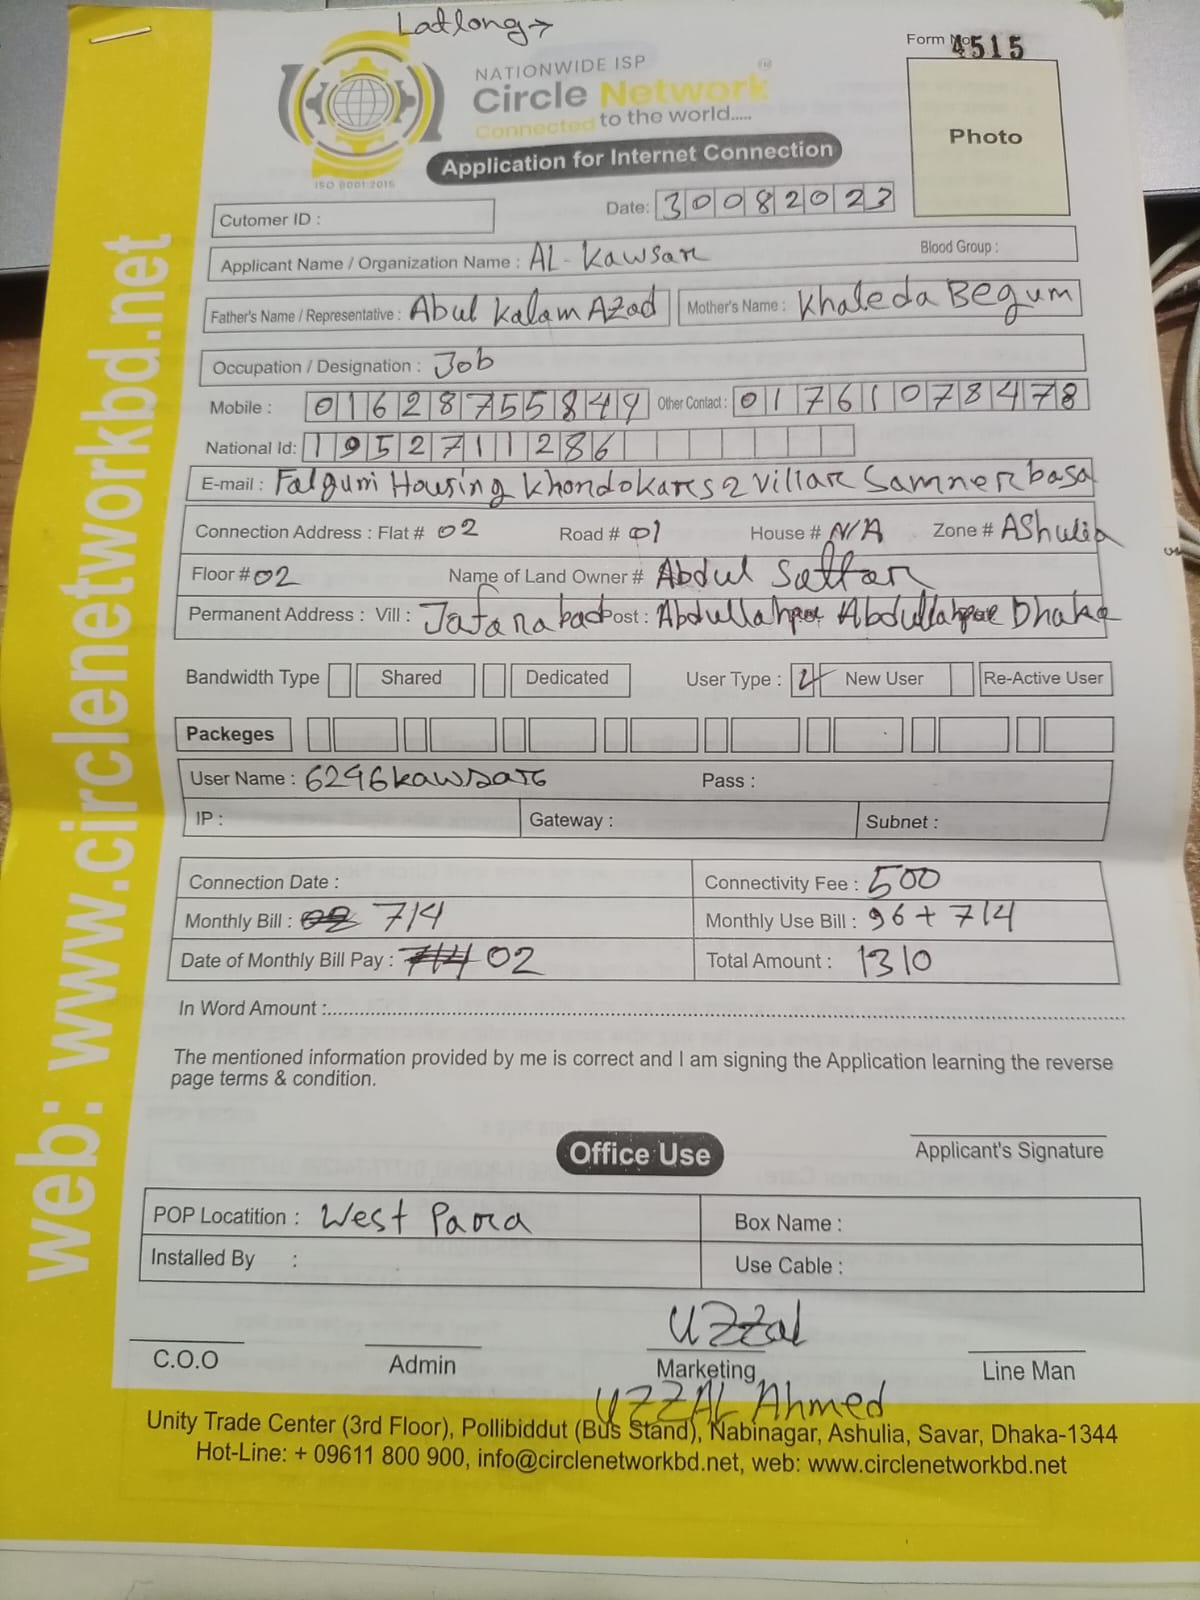 Latlong→
Form No 4515
NATIONWIDE ISP
Circle Network
Connected to the world.....
ISO 9001:2015
Application for Internet Connection
Photo
Cutomer ID :
Date: 30082023
Applicant Name / Organization Name : AL-Kawsar
Blood Group :
Father's Name / Representative : Abul Kalam Azad Mother's Name : Khaleda Begum
Occupation / Designation : Job
Mobile : 01628755849 Other Contact : 01761078478
National Id: 1952711286
E-mail : Falguni Housing Khondokars 2 villar Samner basa
Connection Address : Flat # 02 Road # 01 House # N/A Zone # AShulia
Floor # 02 Name of Land Owner # Abdul Sattar
Permanent Address : Vill : Jafarabad Post : Abdullahpur Abdullahpur Dhaka
Bandwidth Type Shared Dedicated User Type : New User Re-Active User
Packeges
User Name : 6296kawsar Pass :
IP : Gateway : Subnet :
Connection Date : Connectivity Fee : 500
Monthly Bill : 714 Monthly Use Bill : 96 + 714
Date of Monthly Bill Pay : 02 Total Amount : 1310
In Word Amount :
The mentioned information provided by me is correct and I am signing the Application learning the reverse
page terms & condition.
Applicant's Signature
Office Use
POP Locatition : West Para Box Name :
Installed By : Use Cable :
UZZal
C.O.O Admin Marketing Line Man
UZZAL Ahmed
Unity Trade Center (3rd Floor), Pollibiddut (Bus Stand), Nabinagar, Ashulia, Savar, Dhaka-1344
Hot-Line: + 09611 800 900, info@circlenetworkbd.net, web: www.circlenetworkbd.net
web: www.circlenetworkbd.net